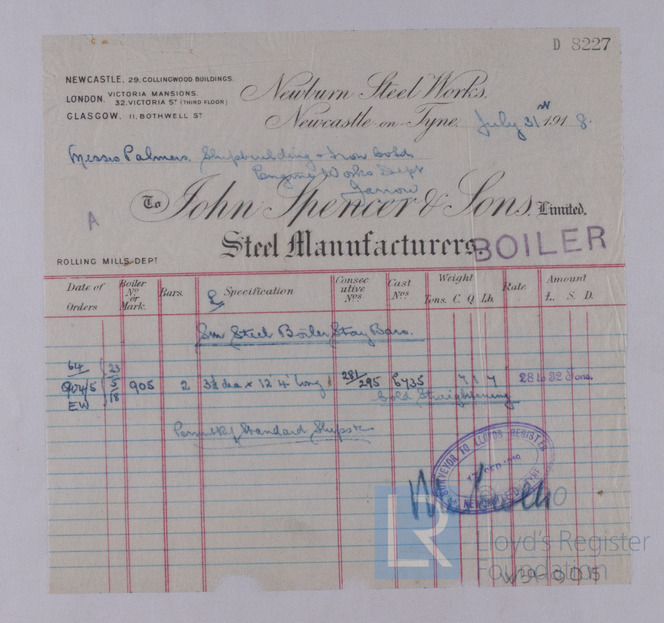 D 8227
NEWCASTLE, 29, COLLINGWOOD BUILDINGS.
LONDON, VICTORIA MANSIONS,
32, VICTORIA ST (THIRD FLOOR)
GLASGOW, 11, BOTHWELL ST
Newburn Steel Works,
Newcastle-on-Tyne, July 31st 1918.
Messrs Palmers Shipbuilding & Iron Co Ld
Engine Works Dept
Jarrow
A
To John Spencer & Sons, Limited,
Steel Manufacturers.
BOILER
ROLLING MILLS DEPT
Date of Orders Boiler No or Mark. Bars. Specification Consecutive Nos Cast Nos Weight Tons. C. Q. Lb. Rate Amount L. S. D.
Sm Steel Boiler Stay Bars.
64/ 23/5/18 905 2 12' 4" long 281/295 6735 7 1 7
EW
Cold Straightening
Standard Ships
SURVEYOR TO LLOYD'S REGISTER
LR
Lloyd's Register
Foundation